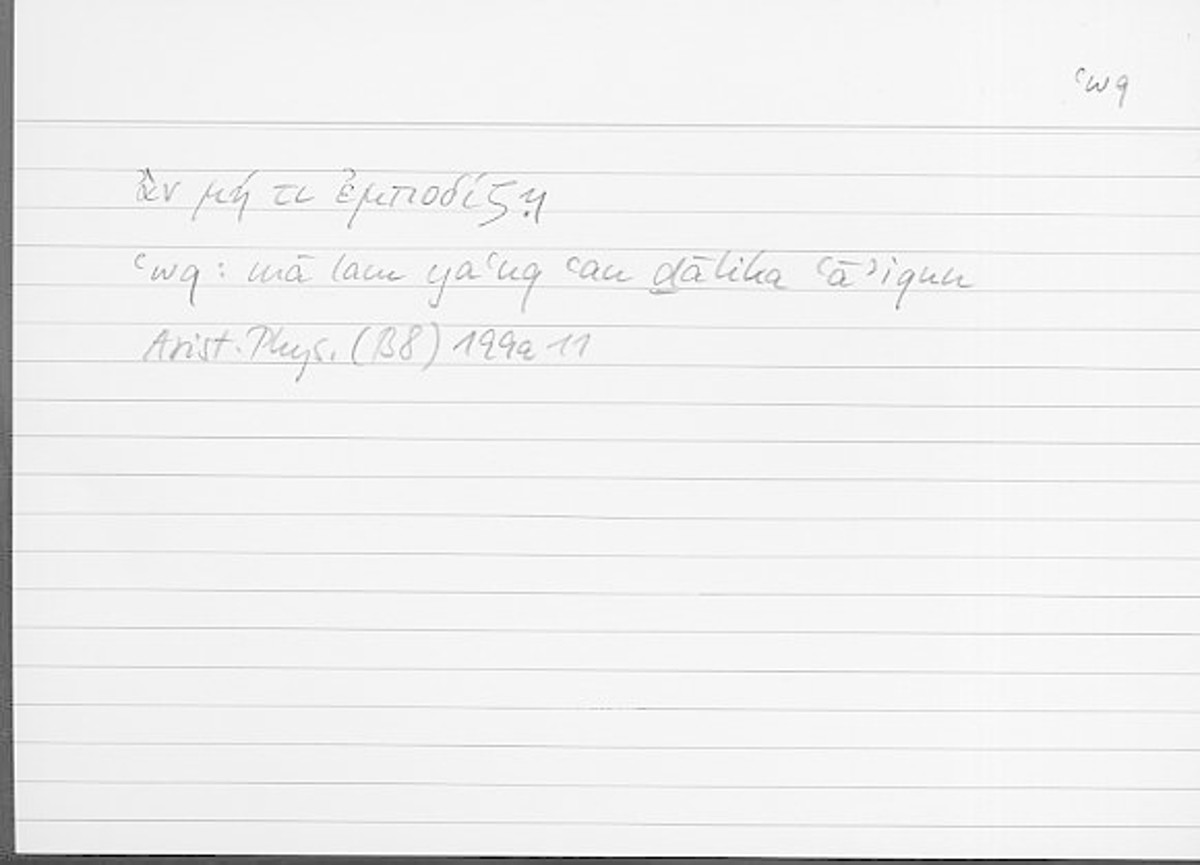 ʿwq
ἂν μή τι ἐμποδίζῃ
ʿwq: mā lam yaʿuq ʿan ḏālika ʿāʾiqun
Arist. Phys. (B8) 199a 11